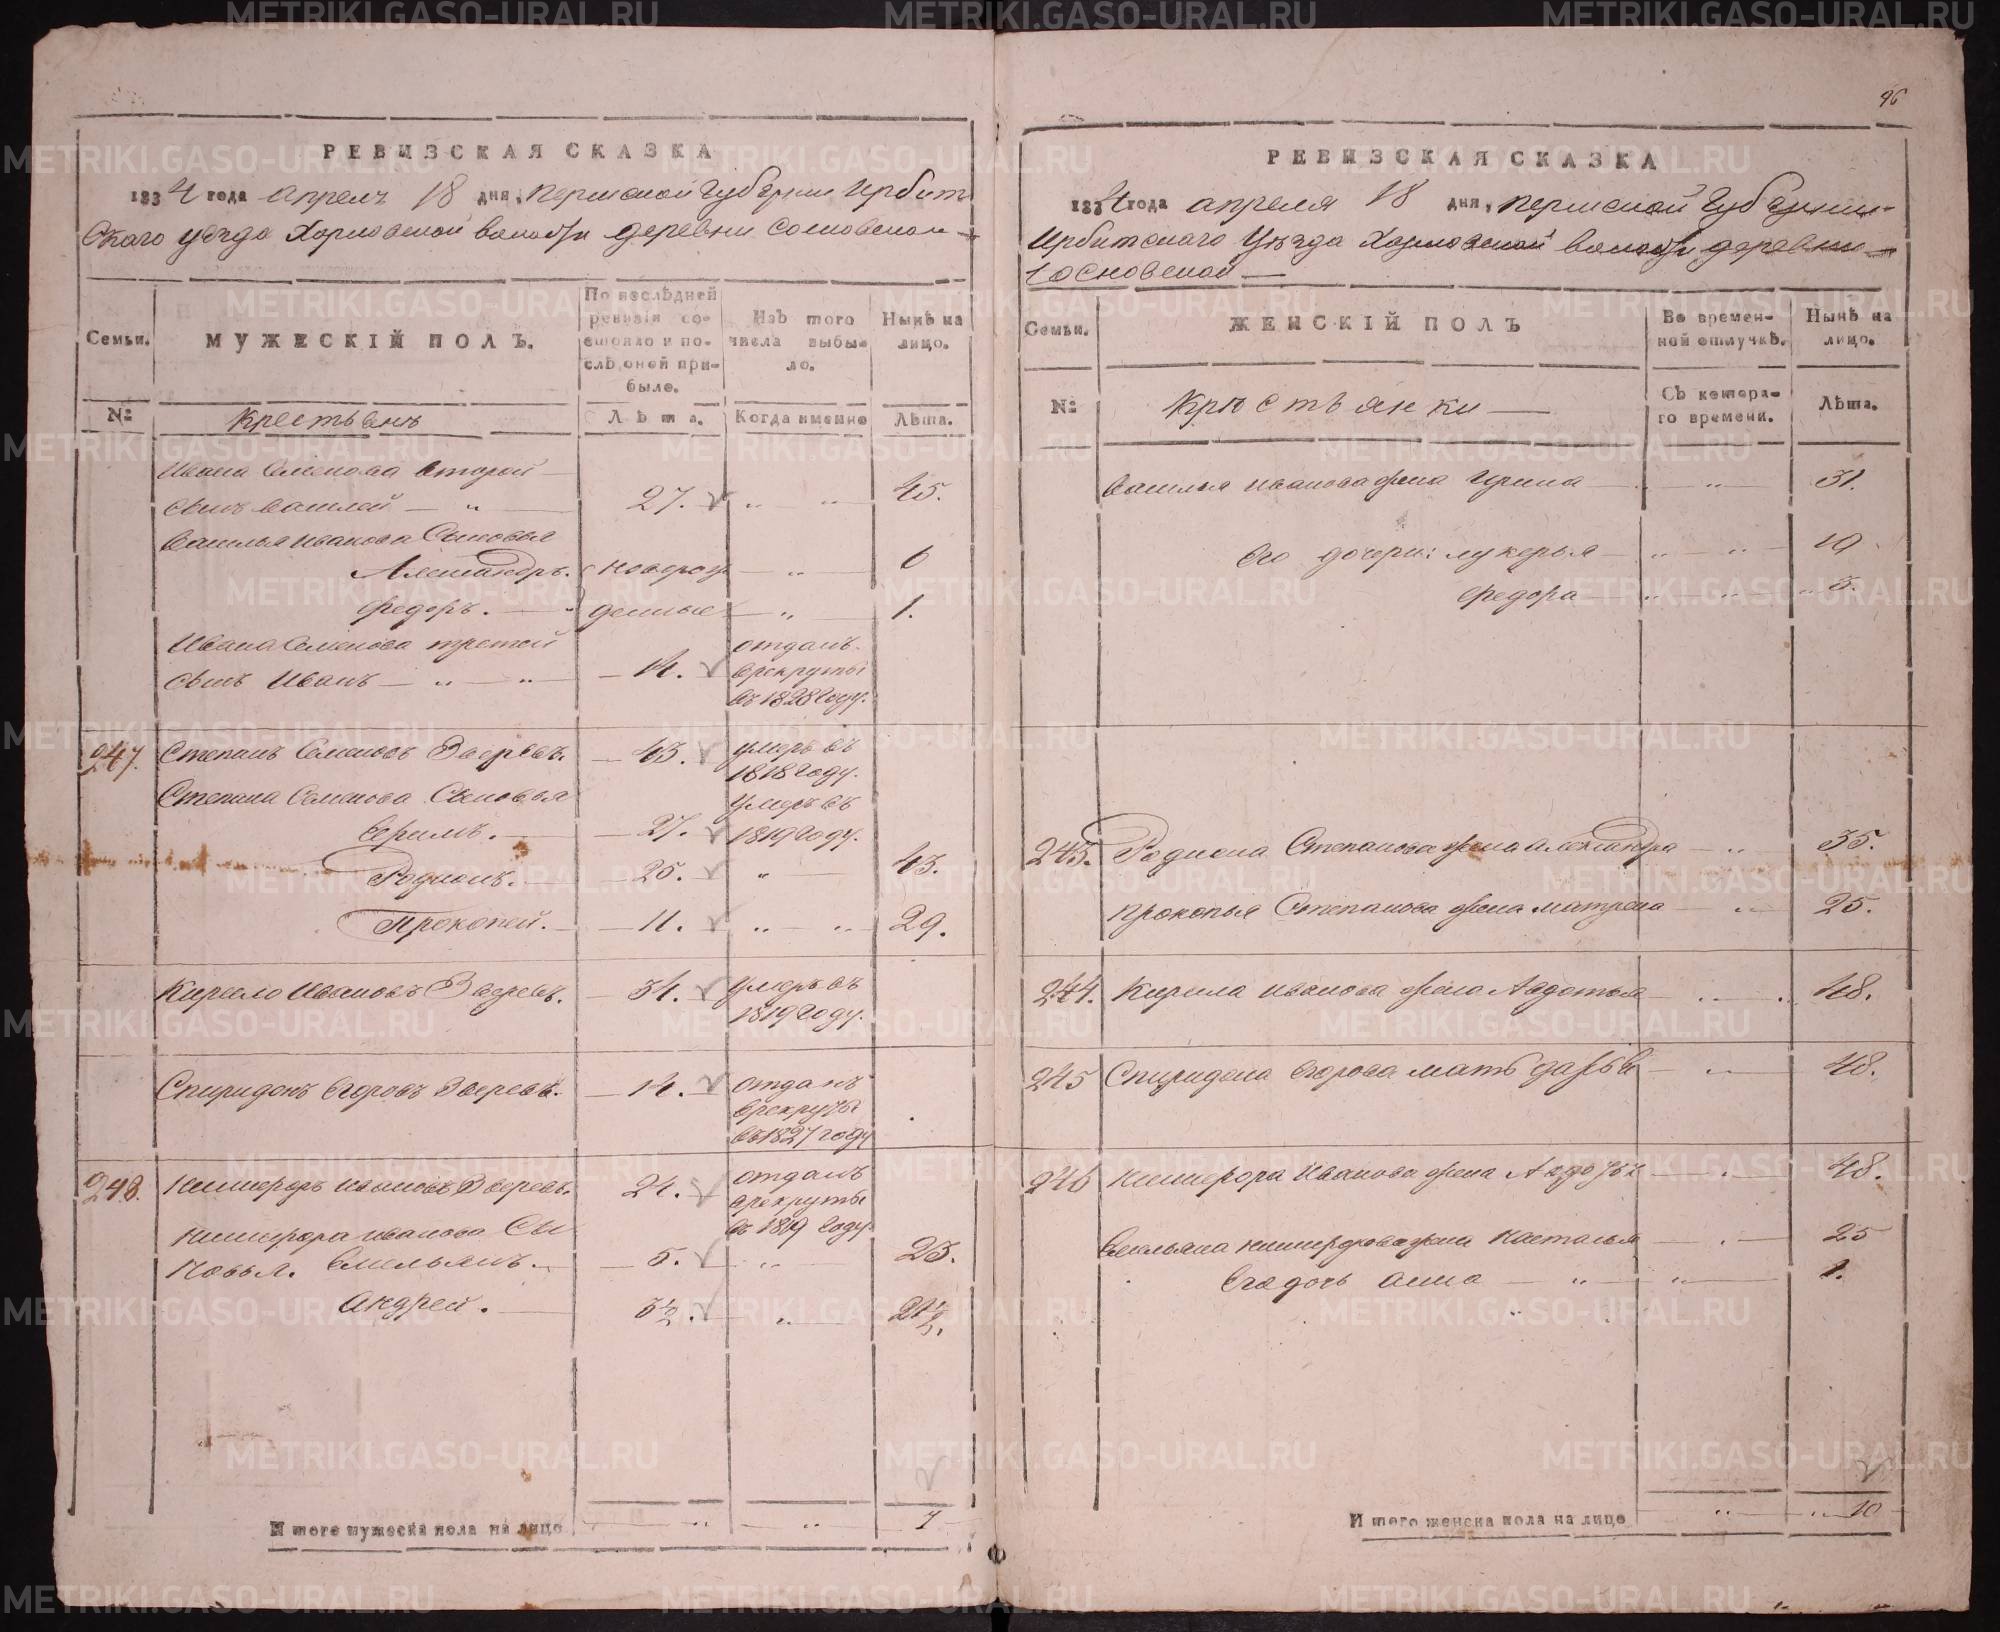 РЕВИЗСКАЯ СКАЗКА
1834 года апреля 18 дня, Пермской Губернии Ирбит
скаго уезда Харловской волости деревни Сосновской
Семьи.
МУЖЕСКІЙ ПОЛЪ.
По послѣдней ревизіи состояло и послѣ оной прибыло.
Изъ того числа выбыло.
Нынѣ на лицо.
№
Крестьянъ
Лѣта.
Когда именно
Лѣта.
Ивана Семенова второй
сынъ Василей 27. 45.
Василья Иванова Сыновья
Александръ. новорож 6
Федоръ. денные 1.
Ивана Семенова третей
сынъ Иванъ 14. отданъ
врекруты
въ 1828 году.
247. Степанъ Семеновъ Зверевъ. 43. умеръ въ
1818 году.
Степана Семенова Сыновья
Ефимъ. 27. умеръ въ
1819 году.
Родионъ. 25. 43.
Прокопей. 11. 29.
Кирило Ивановъ Зверевъ. 31. умеръ въ
1819 году.
Спиридонъ Егоровъ Зверевъ. 14. отданъ
врекруты
въ 1827 году
248. Никифоръ Ивановъ Зверевъ. 24. отданъ
врекруты
въ 1819 году.
Никифора Иванова Сы
новья. Емельянъ. 5. 23.
Андрей. 3½. 21½.
Итого мужеска пола на лицо 7
96
РЕВИЗСКАЯ СКАЗКА
1834 года апреля 18 дня, Пермской Губернии
Ирбитскаго Уезда Харловской волости деревни
Сосновской
Семьи.
ЖЕНСКІЙ ПОЛЪ
Во временной отлучкѣ.
Нынѣ на лицо.
№
Крестьянки
Съ котораго времени.
Лѣта.
Василья Иванова жена Ирина 31.
Его дочери: лукерья 10
Федора 3.
243. Родиона Степанова жена Александра 35.
Прокопья Степанова жена матрена 25.
244. Кирила Иванова жена Авдотья 48.
245 Спиридона Егорова мать дарья 48.
246 Никифора Иванова жена 48.
Емельяна Никифорова жена Настасья 25
Его дочь анна 1.
Итого женска пола на лицо 10
METRIKI.GASO-URAL.RU